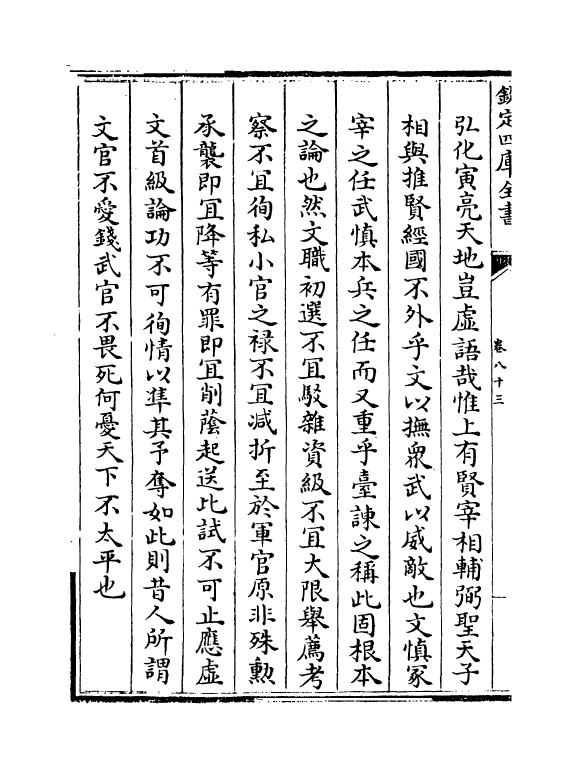 欽定四庫全書
卷八十三
弘化寅亮天地豈虛語哉惟上有賢宰相輔弼聖天子
相與推賢經國不外乎文以撫衆武以威敵也文慎冢
宰之任武慎本兵之任而又重乎臺諫之稱此固根本
之論也然文職初選不冝駁雜資級不冝大限舉薦考
察不冝徇私小官之禄不冝减折至於軍官原非殊勲
承襲即冝降等有罪即冝削蔭起送比試不可止應虛
文首級論功不可徇情以準其予奪如此則昔人所謂
文官不愛錢武官不畏死何憂天下不太平也